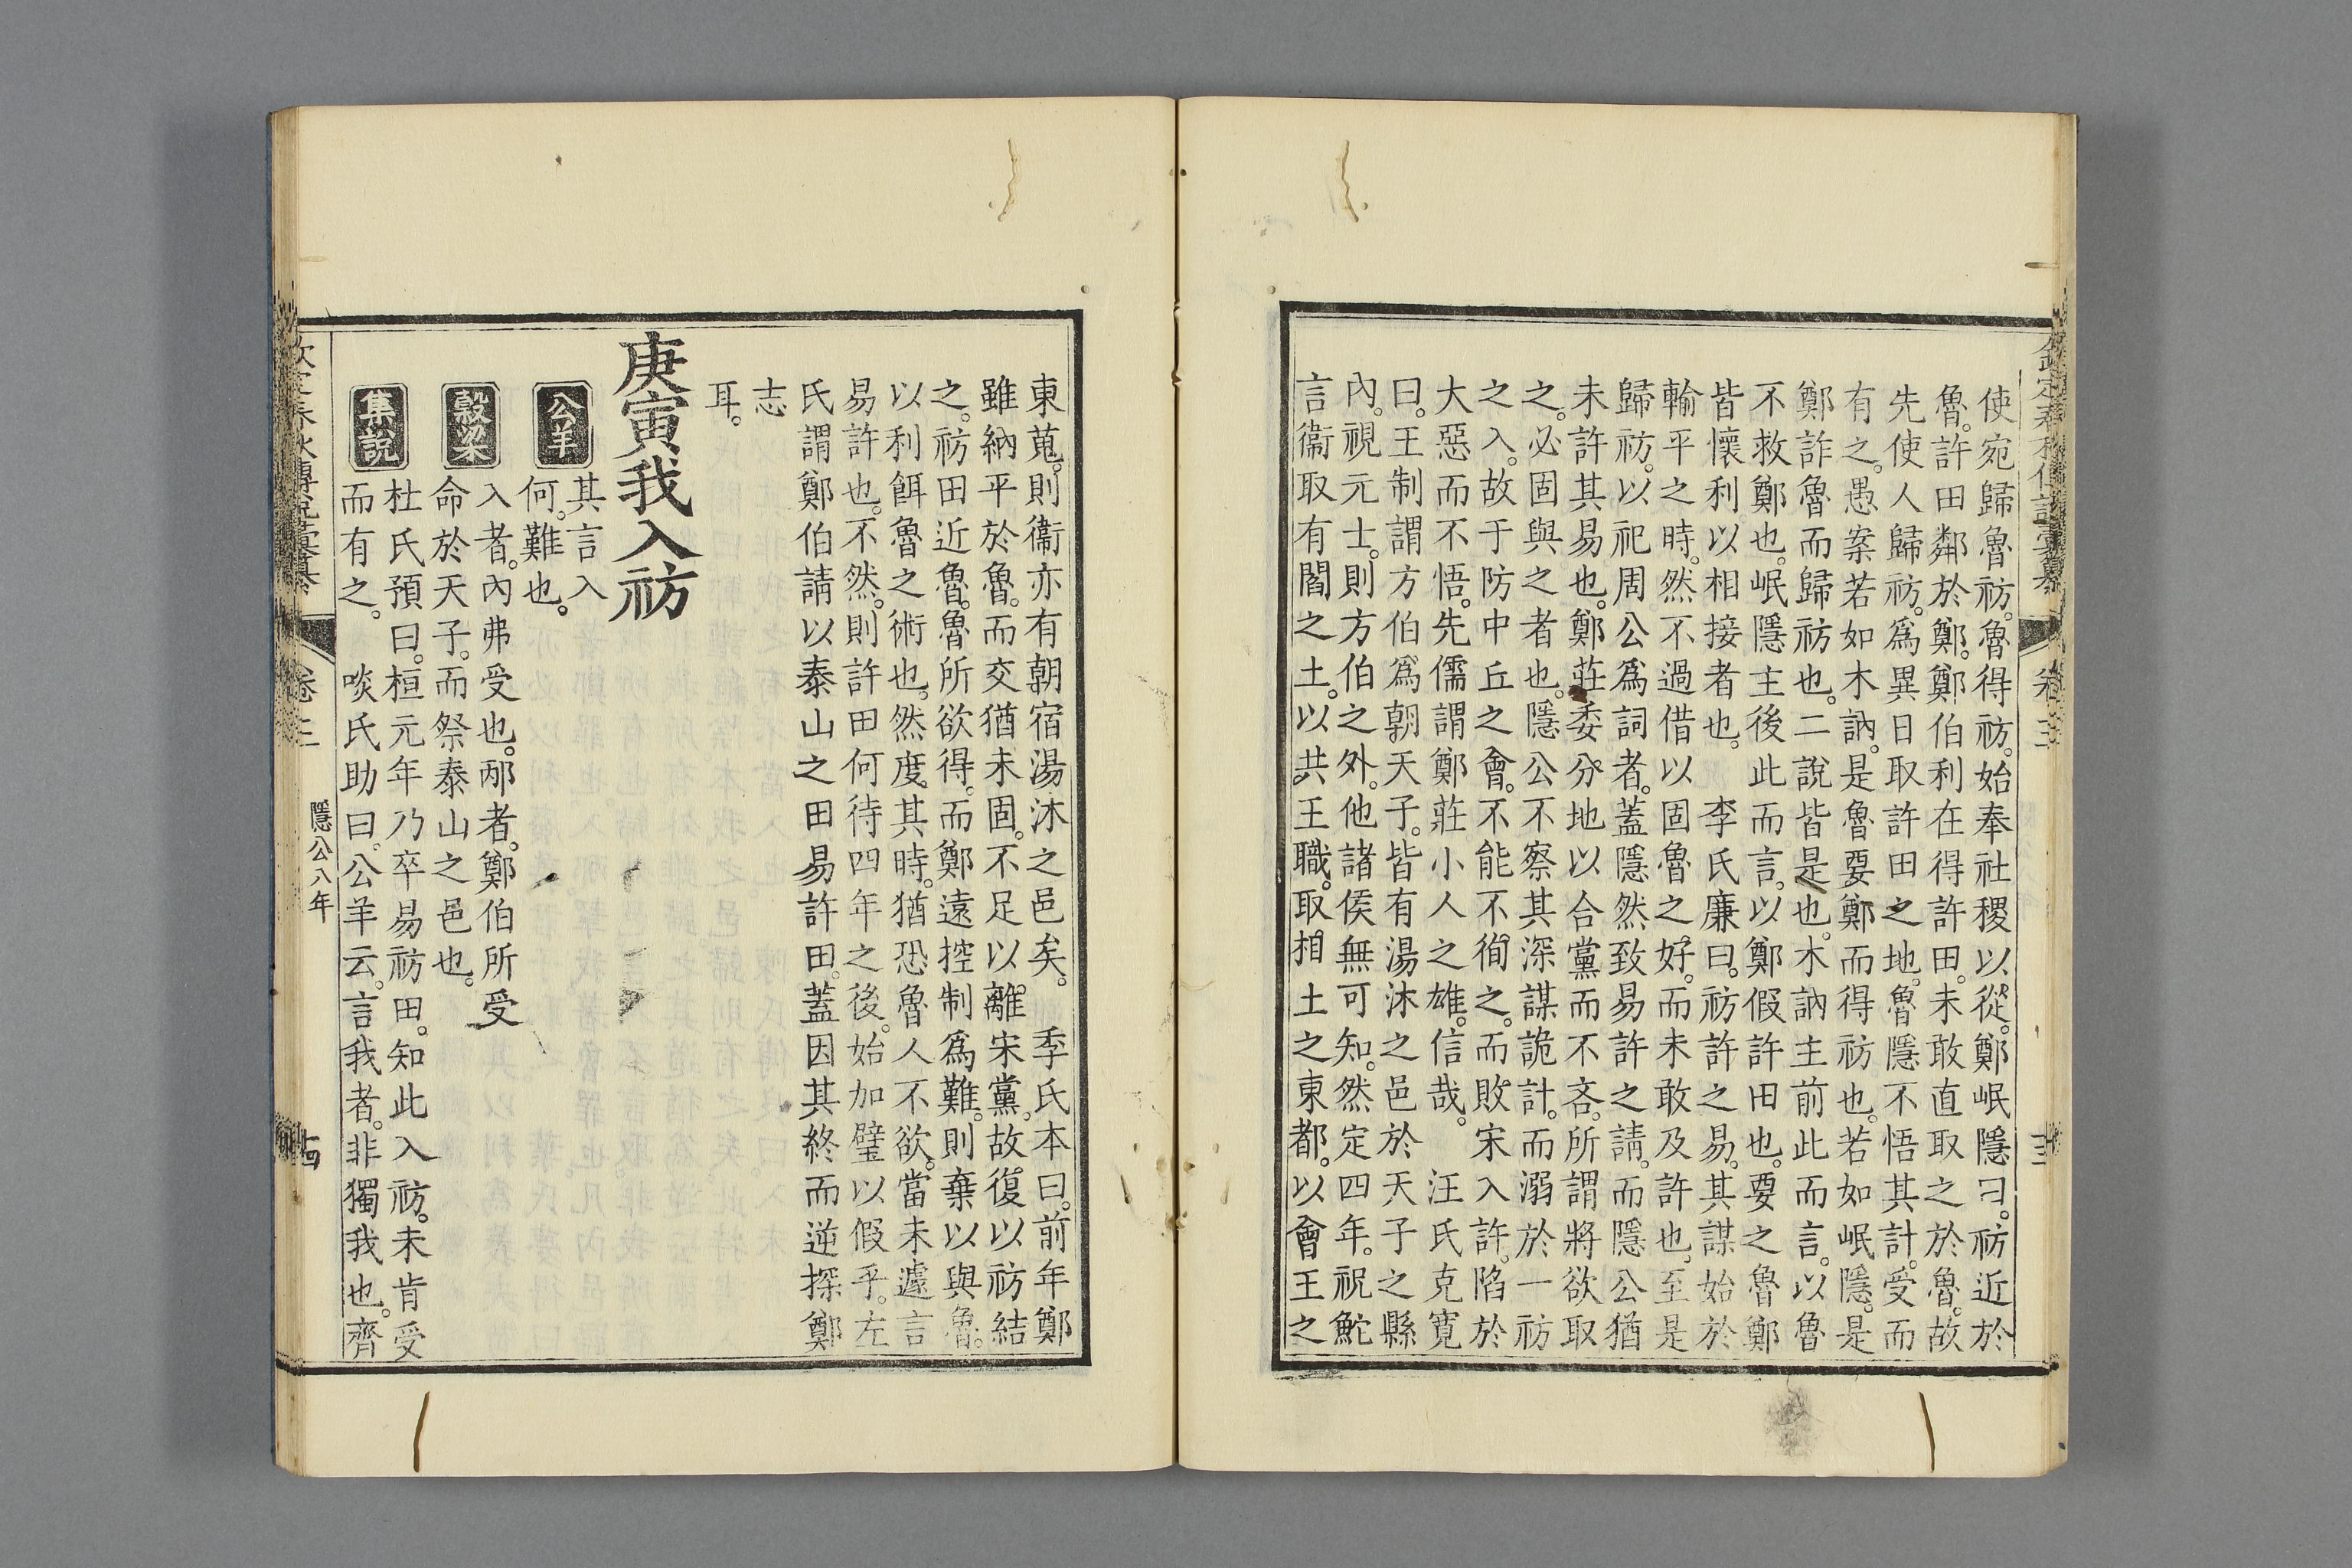 使宛歸魯祊。魯得祊。始奉社稷以從。鄭岷隱曰。祊近於
魯。許田鄰於鄭。鄭伯利在得許田。未敢直取之於魯。故
先使人歸祊。爲異日取許田之地。魯隱不悟其計。受而
有之。愚案若如木訥。是魯要鄭而得祊也。若如岷隱。是
鄭詐魯而歸祊也。二說皆是也。木訥主前此而言。以魯
不救鄭也。岷隱主後此而言。以鄭假許田也。要之魯鄭
皆懷利以相接者也。李氏廉曰。祊許之易。其謀始於
輸平之時。然不過借以固魯之好。而未敢及許也。至是
歸祊。以祀周公爲詞者。蓋隱然致易許之請。而隱公猶
未許其易也。鄭莊委分地以合黨而不吝。所謂將欲取
之。必固與之者也。隱公不察其深謀詭計。而溺於一祊
之入。故于防中丘之會。不能不徇之。而敗宋入許。陷於
大惡而不悟。先儒謂鄭莊小人之雄。信哉。汪氏克寬
曰。王制謂方伯爲朝天子。皆有湯沐之邑於天子之縣
內。視元士。則方伯之外。他諸侯無可知。然定四年。祝鮀
言衞取有閻之土。以共王職。取相土之東都。以會王之
東蒐。則衞亦有朝宿湯沐之邑矣。季氏本曰。前年鄭
雖納平於魯。而交猶未固。不足以離宋黨。故復以祊結
之。祊田近魯。魯所欲得。而鄭遠控制爲難。則棄以與魯。
以利餌魯之術也。然度其時。猶恐魯人不欲。當未遽言
易許也。不然。則許田何待四年之後。始加璧以假乎。左
氏謂鄭伯請以泰山之田易許田。蓋因其終而逆探鄭
志
耳。
庚寅我入祊
公羊
其言入
何。難也。
穀梁
入者。內弗受也。邴者。鄭伯所受
命於天子。而祭泰山之邑也。
集說
杜氏預曰。桓元年乃卒易祊田。知此入祊。未肯受
而有之。啖氏助曰。公羊云。言我者。非獨我也。齊
卷三
隱公八年
十四